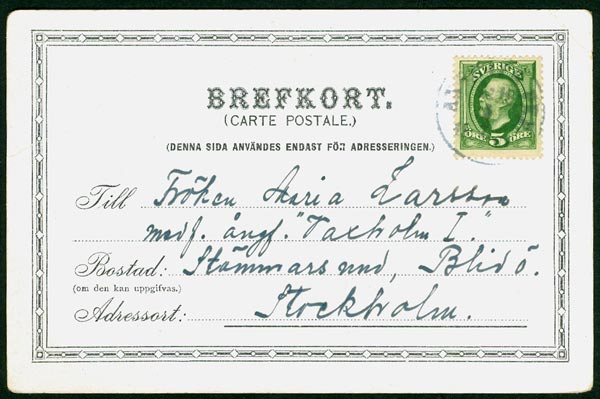 SVERIGE
ÖRE 5 ÖRE
BREFKORT.
(CARTE POSTALE.)
(DENNA SIDA ANVÄNDES ENDAST FÖR ADRESSERINGEN.)
Till Fröken Maria Larsson
medf. ångf. "Vaxholm I."
Bostad: Stämmarsund, Blidö.
(om den kan uppgifvas.)
Adressort: Stockholm.